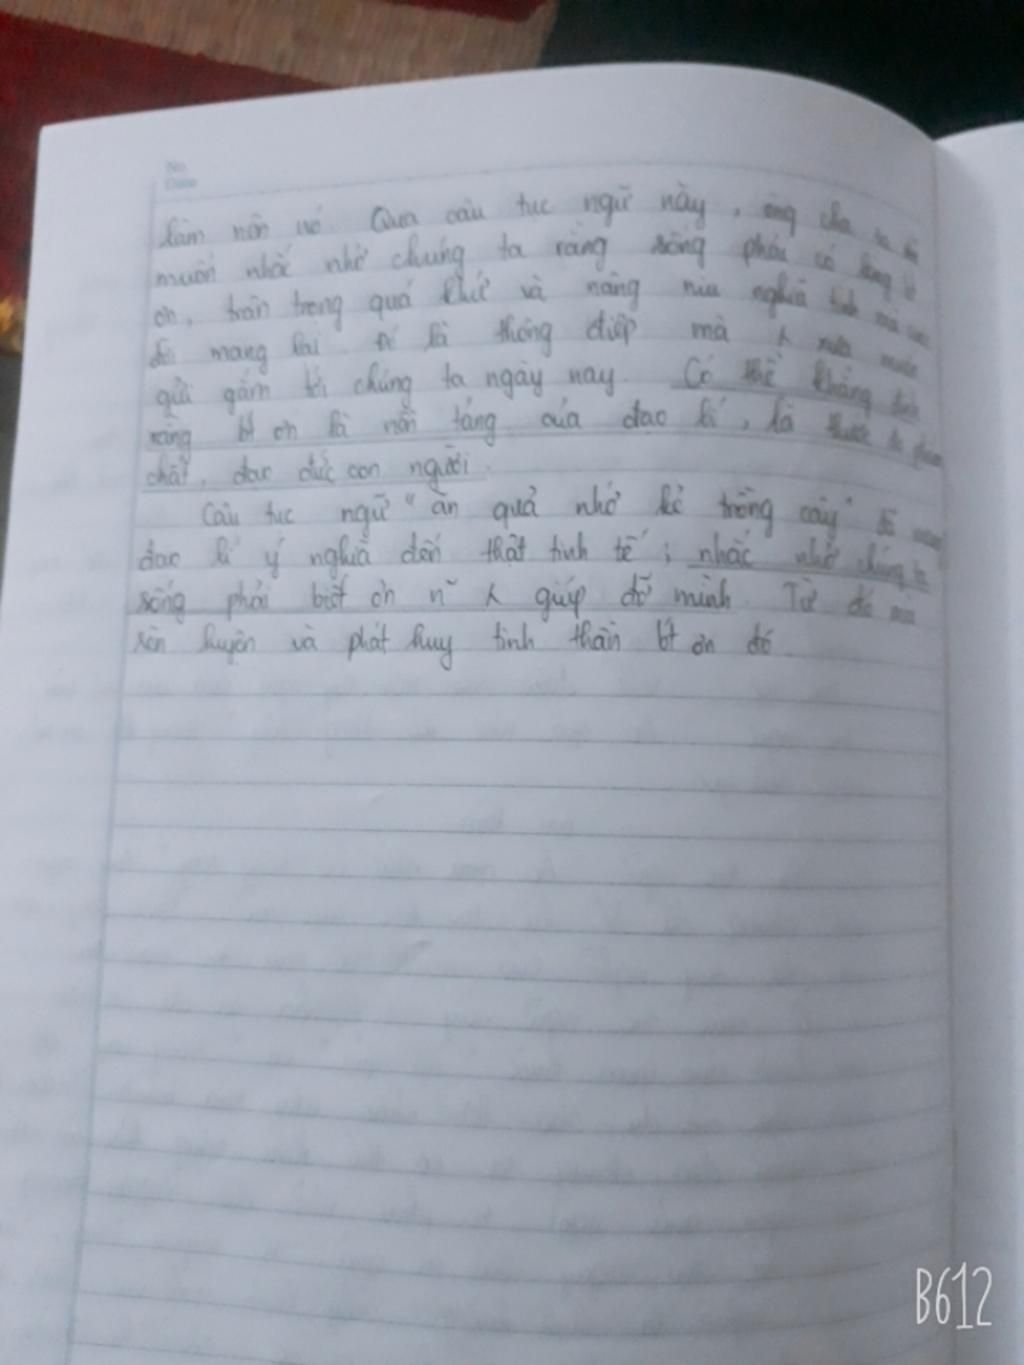 No.
Date
làm nên nó. Qua câu tục ngữ này, ông cha ta
muốn nhắc nhở chúng ta rằng sống phải có lòng
ơn, trân trọng quá khứ và nâng niu nghĩa tình mà
đời mang lại. Đó là thông điệp mà xưa muốn
gửi gắm tới chúng ta ngày nay. Có thể khẳng định
rằng bt ơn là nền tảng của đạo lí, là thước đo phẩm
chất, đạo đức con người.
Câu tục ngữ "ăn quả nhớ kẻ trồng cây" đã mang
đạo lí ý nghĩa đến thật tinh tế; nhắc nhở chúng ta
sống phải biết ơn n~ giúp đỡ mình. Từ đó mà
rèn luyện và phát huy tinh thần bt ơn đó.
B612